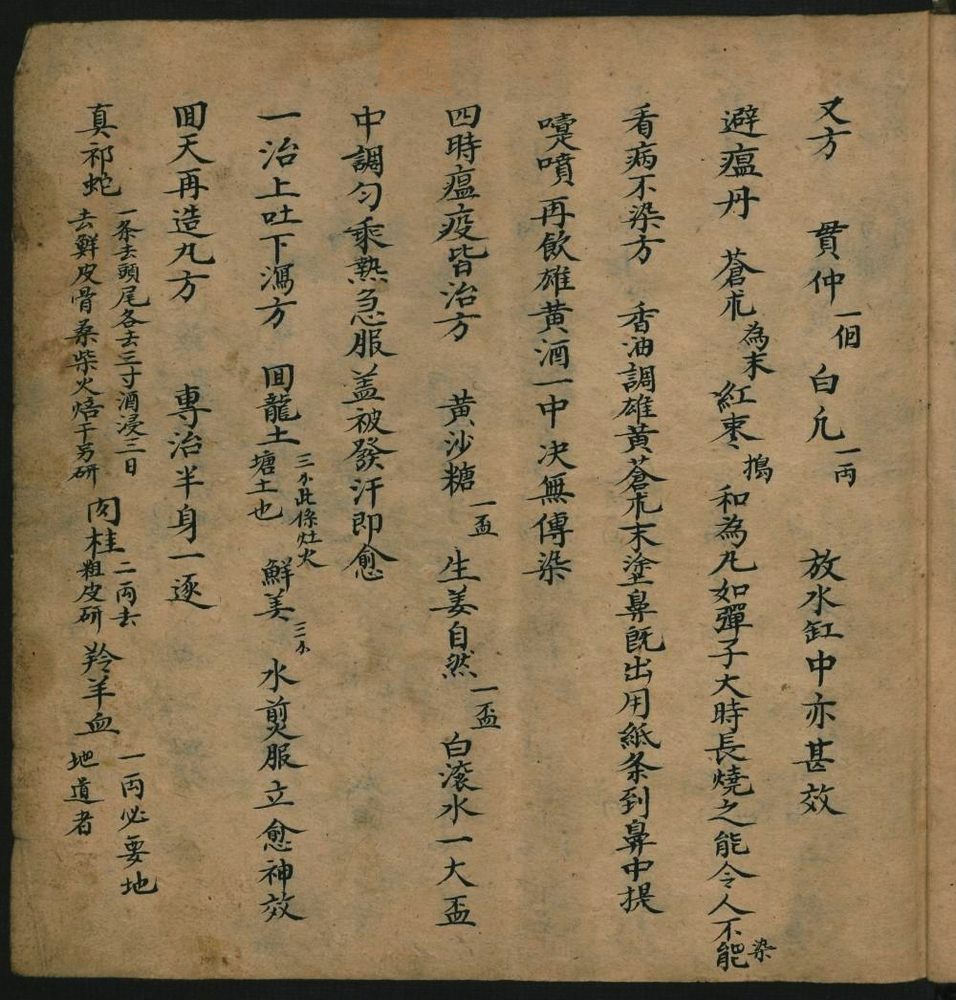 又方 貫仲一個 白凡一両 放水缸中亦甚效
避瘟丹 蒼朮為末 紅棗搗 和為丸如彈子大時長燒之能令人不能染
看病不染方 香油調雄黃蒼朮末塗鼻既出用紙条到鼻中提
嚏噴再飲雄黃酒一中决無傳染
四時瘟疫皆治方 黃沙糖一盃 生姜自然一盃 白滚水一大盃
中調匀乘熱急服盖被發汗即愈
一治上吐下瀉方 囬龍土三个此係灶火塘土也 鮮姜三个 水煎服立愈神效
囬天再造九方 專治半身一逐
真祁蛇一条去頭尾各去三寸酒浸三日去鮮皮骨桑柴火焙干另研 肉桂二両去粗皮研 羚羊血一両必要地地道者